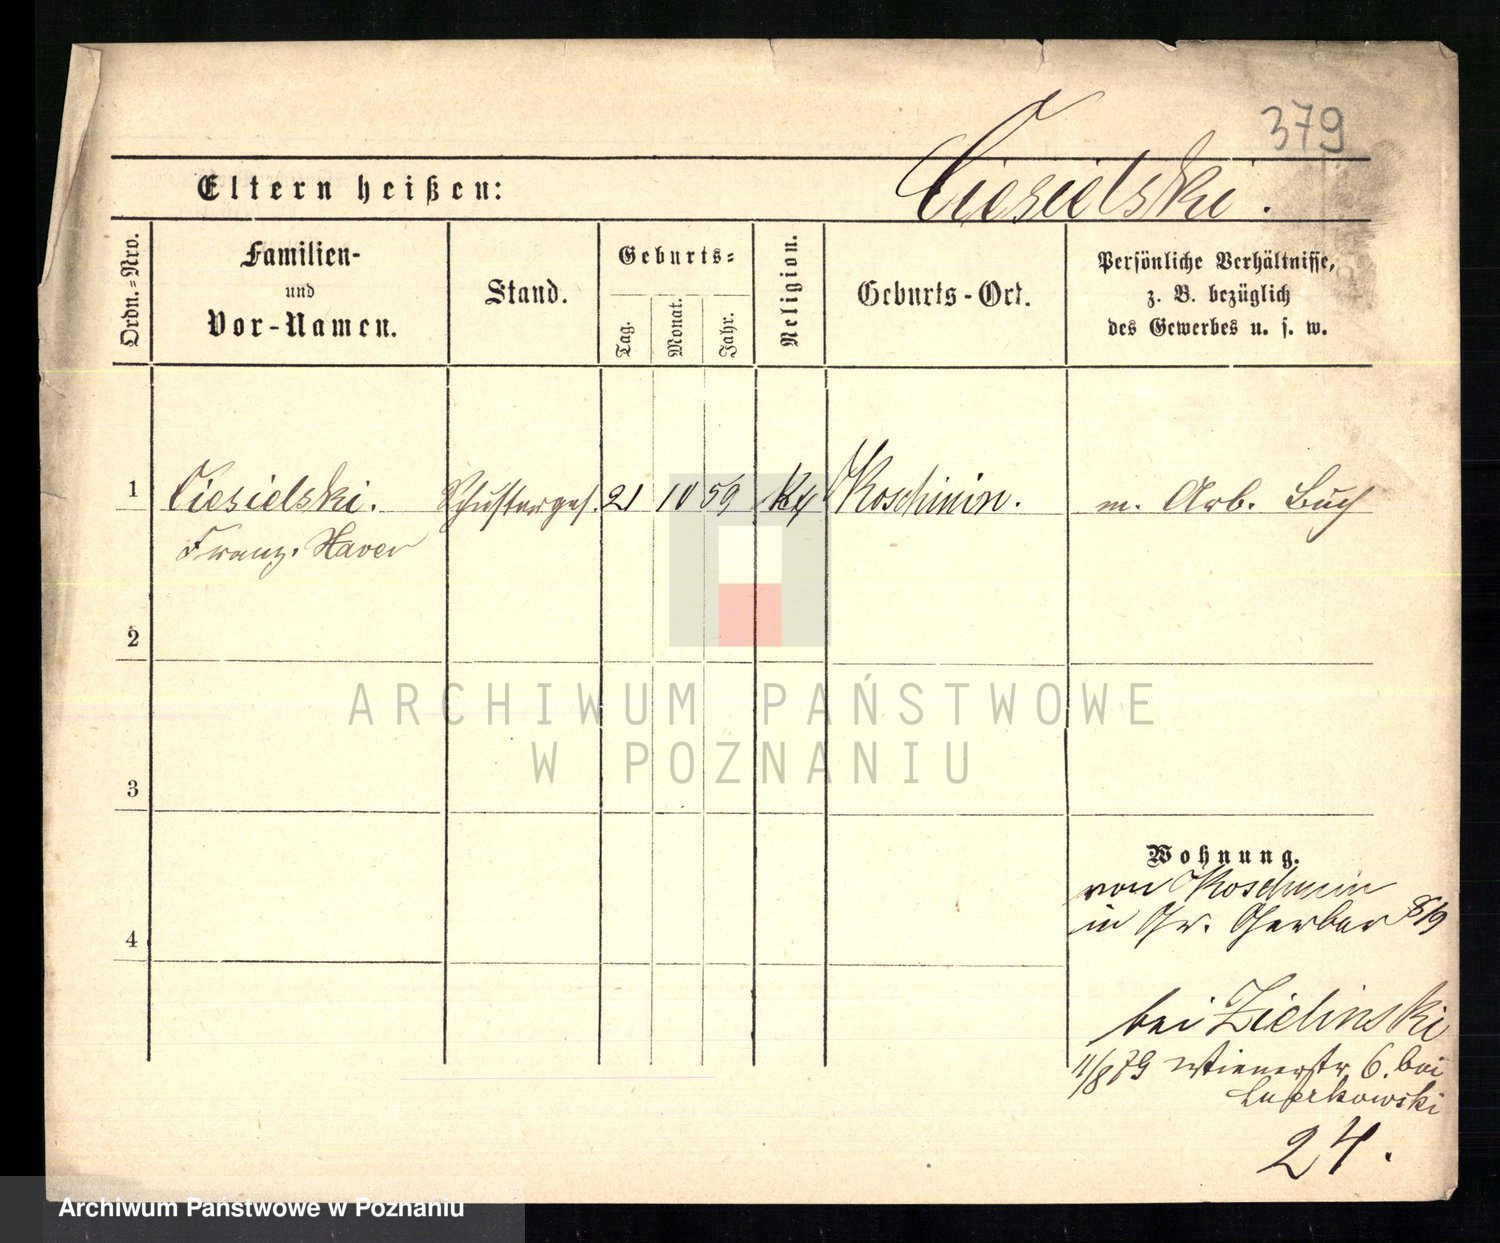 379
Eltern heißen:
Ciesielski.
Ordn.=Nro.
Familien-
und
Vor-Namen.
Stand.
Geburts=
Tag.
Monat.
Jahr.
Religion.
Geburts-Ort.
Persönliche Verhältnisse,
z. B. bezüglich
des Gewerbes u. s. w.
1 Ciesielski. Schusterges. 21 10 59 kth Koschmin. m. Arb. Buch
Franz. Xaver
2
3
4
ARCHIWUM PAŃSTWOWE
W POZNANIU
Wohnung.
von Koschmin
in Gr. Gerber
bei Zielinski
11/8 79 Wienerstr 6. bei
24.
Archiwum Państwowe w Poznaniu